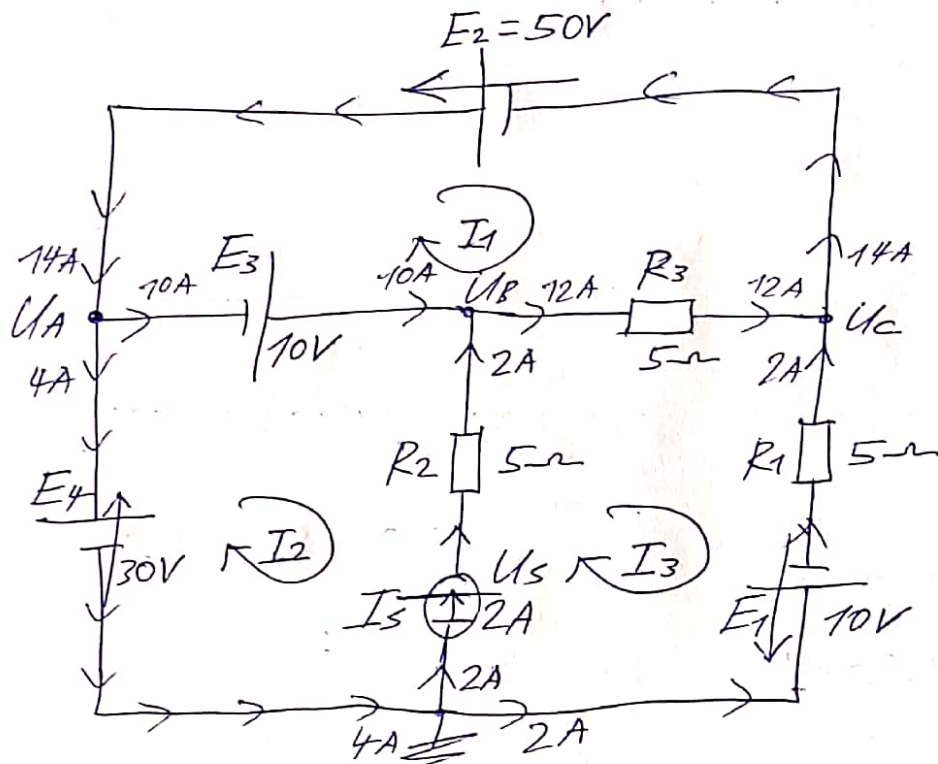 E2=50V
I1
14A
10A
E3
10V
10A
UB
12A
R3
5Ω
12A
14A
UA
UC
4A
2A
2A
R2
5Ω
R1
5Ω
E4
30V
I2
US
I3
IS
2A
E1
10V
2A
4A
2A